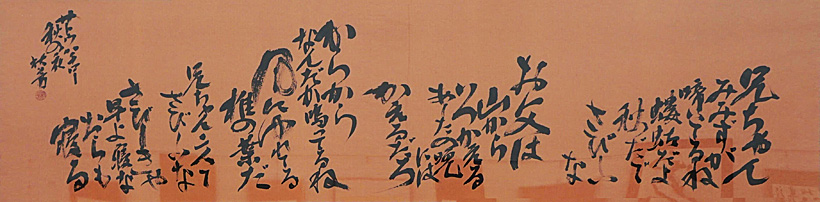 兄ちゃんて
みみずが
啼いてるね
螻蛄だよ
秋だて
さびしいな
お父は
山から
いつかえる
あしたの晩には
かえるだろ
からから
なんだか鳴ってるね
風にゆれてる
椎の葉だ
兄ちゃんてて
さびしいな
さびしきゃ
早よ寝な
おらも
寝る
秋の夜